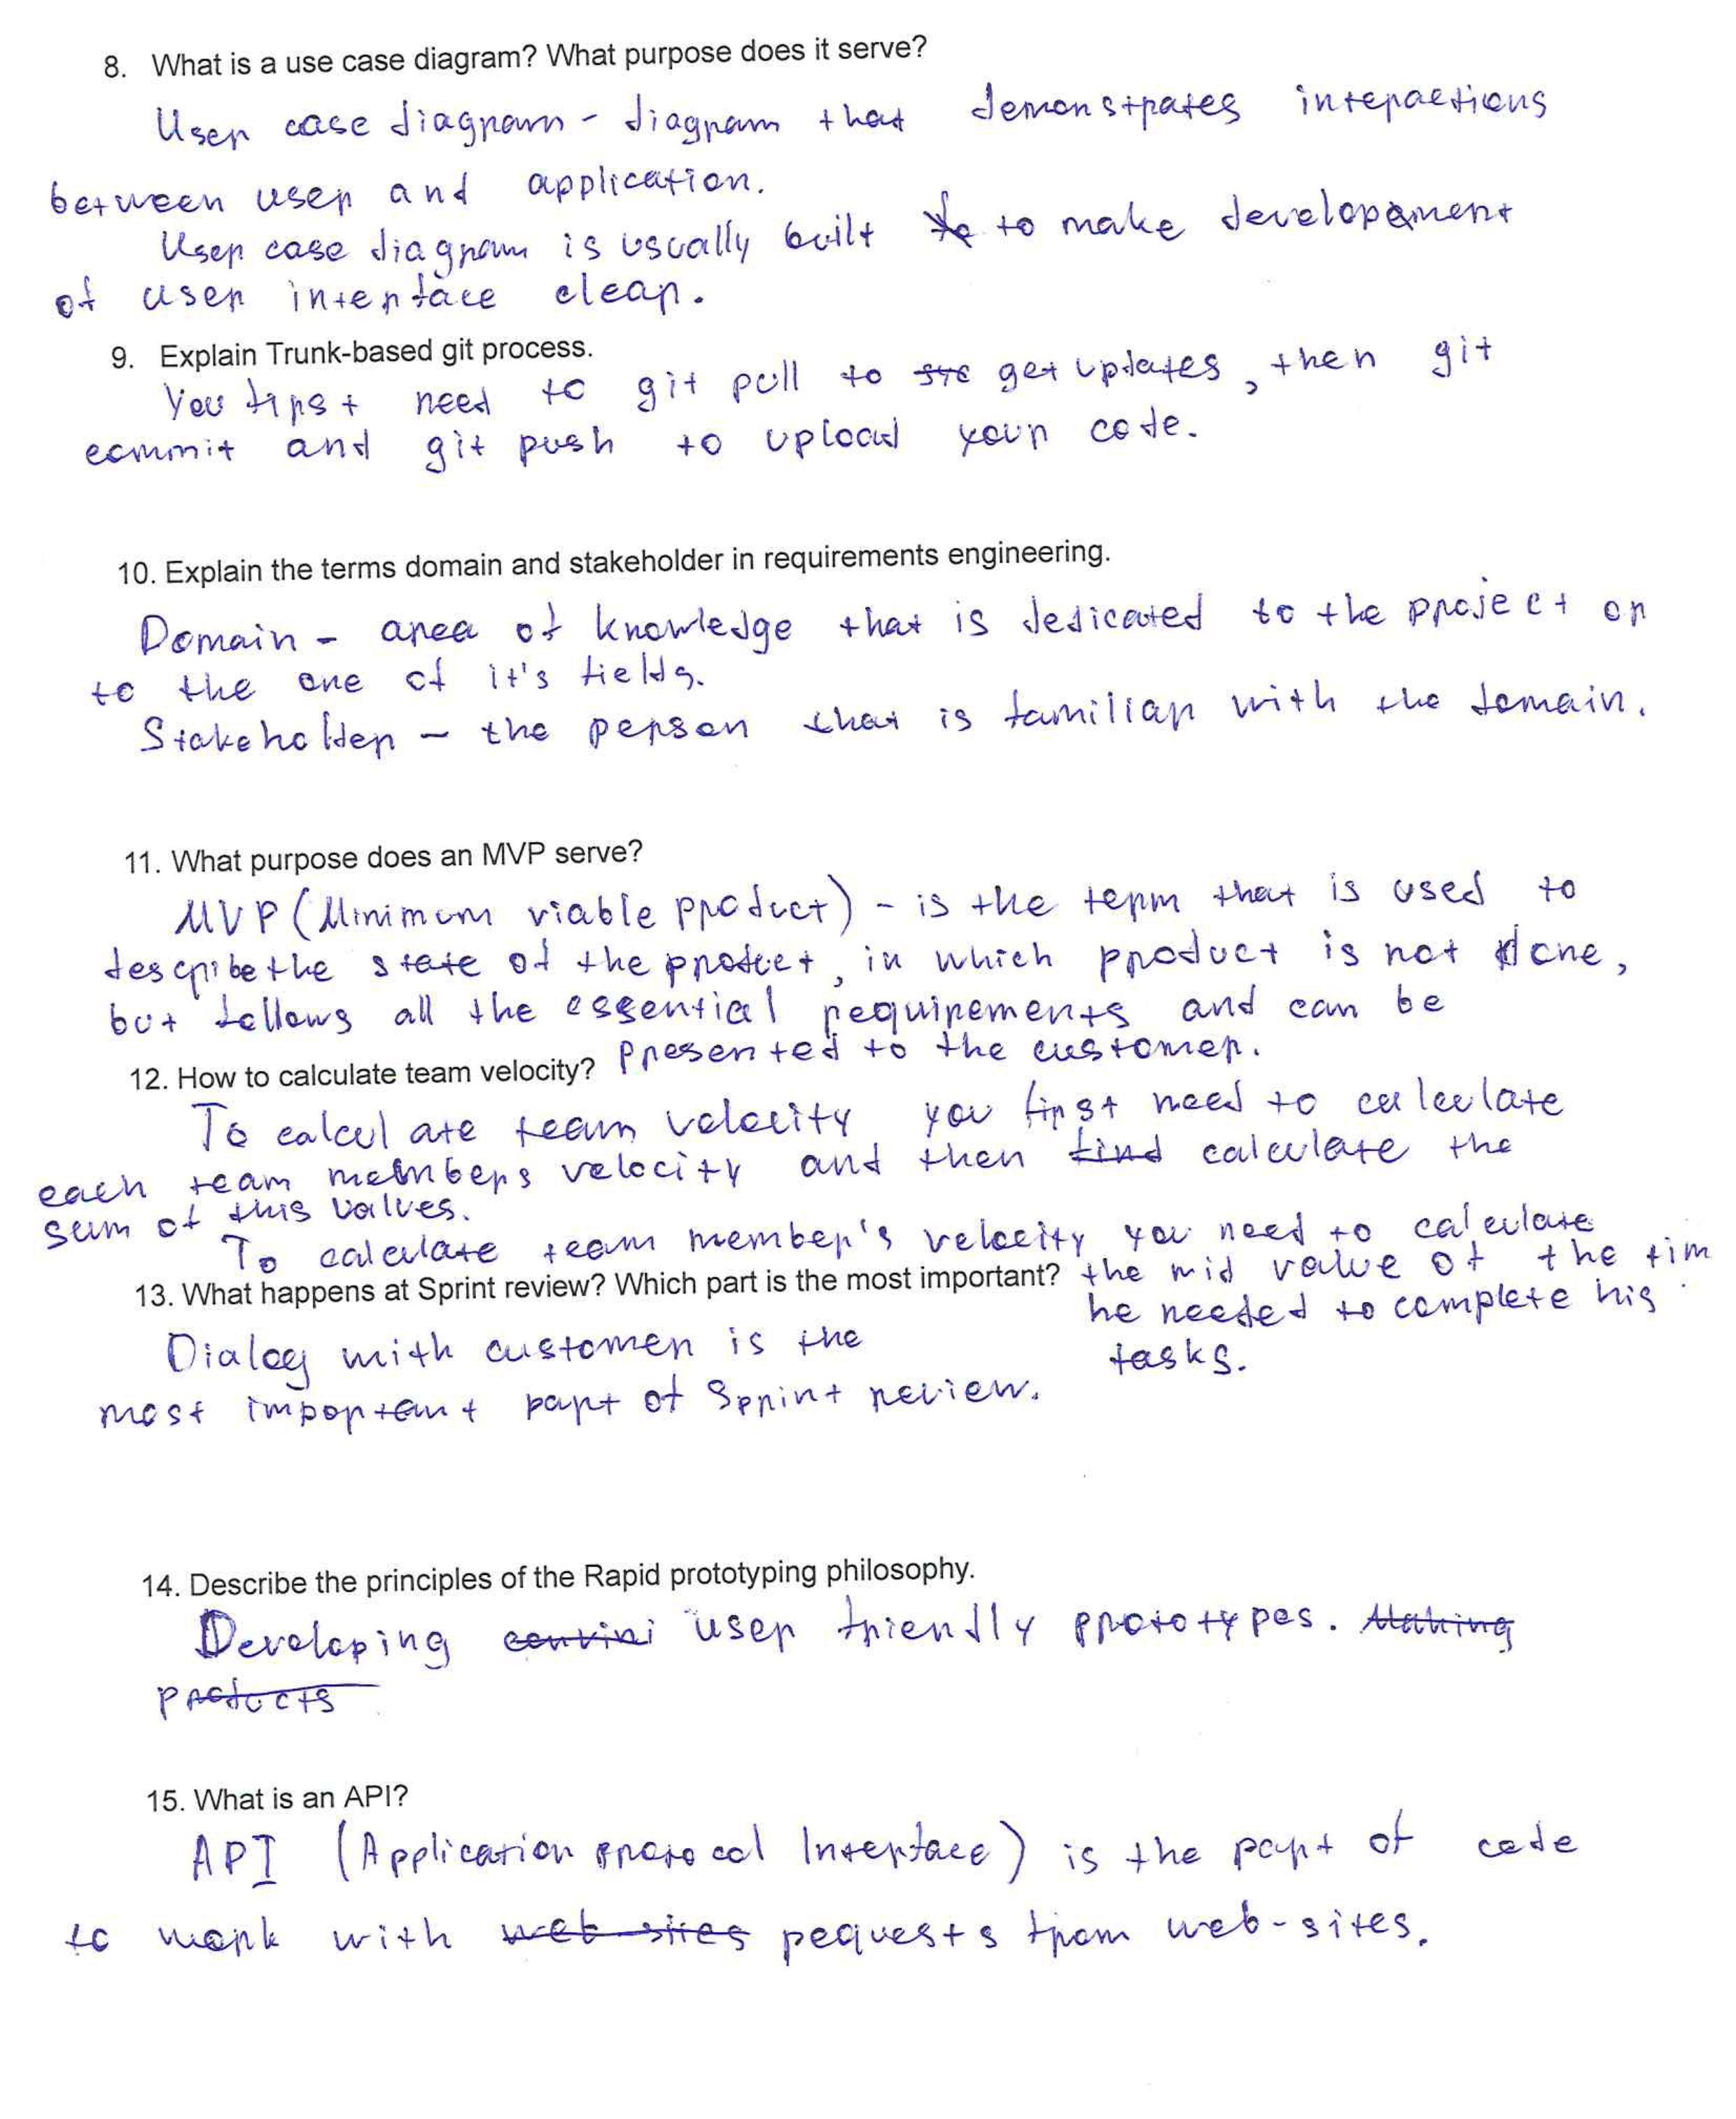 8. What is a use case diagram? What purpose does it serve?
User case diagram - diagram that demonstrates interactions
between user and application.
User case diagram is usually built to to make development
of user interface clear.
9. Explain Trunk-based git process.
You first need to git pull to get updates, then git
commit and git push to upload your code.
10. Explain the terms domain and stakeholder in requirements engineering.
Domain - area of knowledge that is dedicated to the project or
to the one of it's fields.
Stakeholder - the person that is familiar with the domain.
11. What purpose does an MVP serve?
MVP (Minimum viable product) - is the term that is used to
describe the state of the product, in which product is not done,
but follows all the essential requirements and can be
presented to the customer.
12. How to calculate team velocity?
To calculate team velocity you first need to calculate
each team members velocity and then find calculate the
sum of this values.
To calculate team member's velocity you need to calculate
the mid value of the tim
he needed to complete his
tasks.
13. What happens at Sprint review? Which part is the most important?
Dialog with customer is the
most important part of Sprint review.
14. Describe the principles of the Rapid prototyping philosophy.
Developing convini user friendly prototypes. Making
products
15. What is an API?
API (Application protocol Interface) is the part of code
to work with web-sites requests from web-sites.